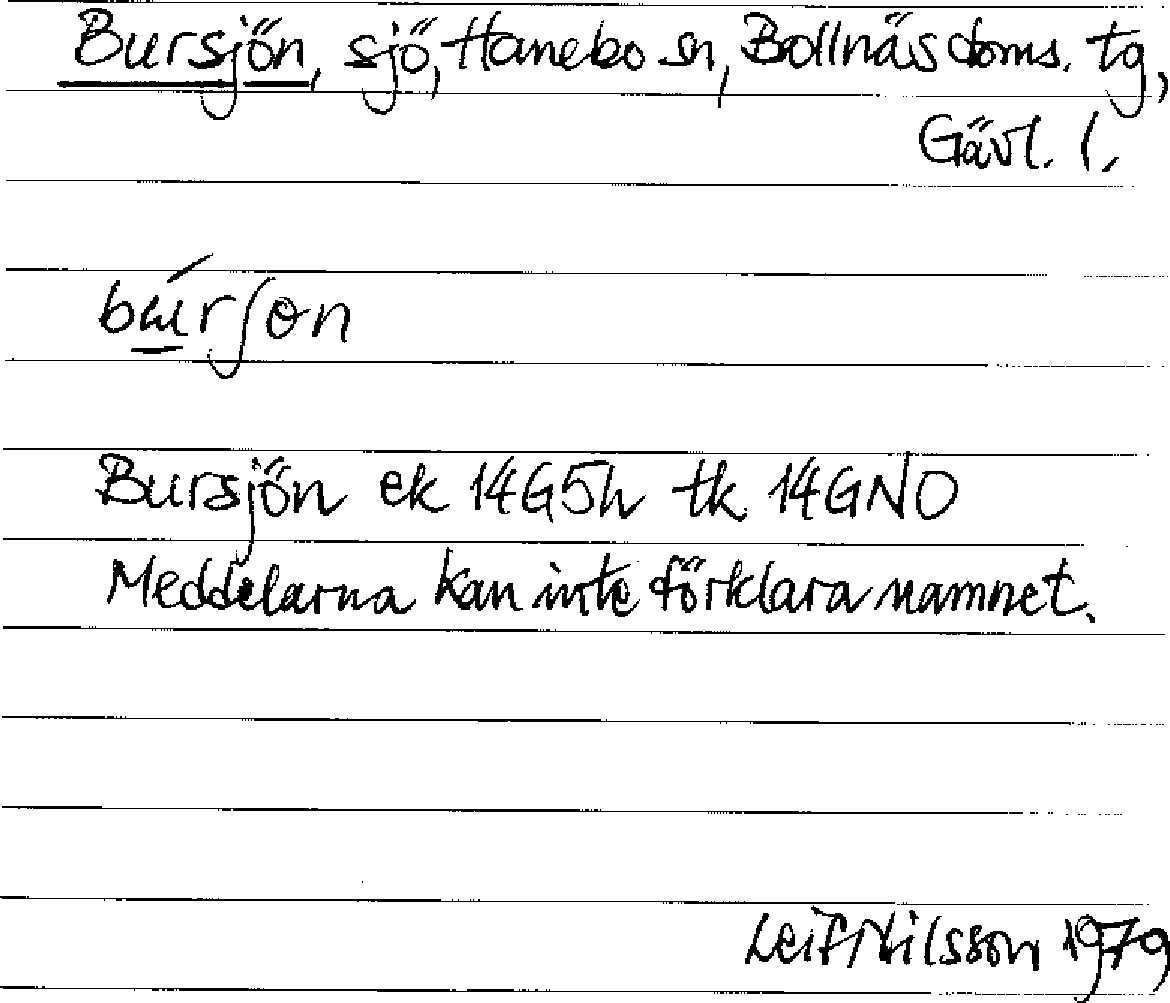 Bursjön, sjö, Hanebo sn, Bollnäs doms. tg,
Gävl. l.
Bursjön ek 14G5h tk 14GNO
Meddelarna kan inte förklara namnet.
Leif Nilsson 1979